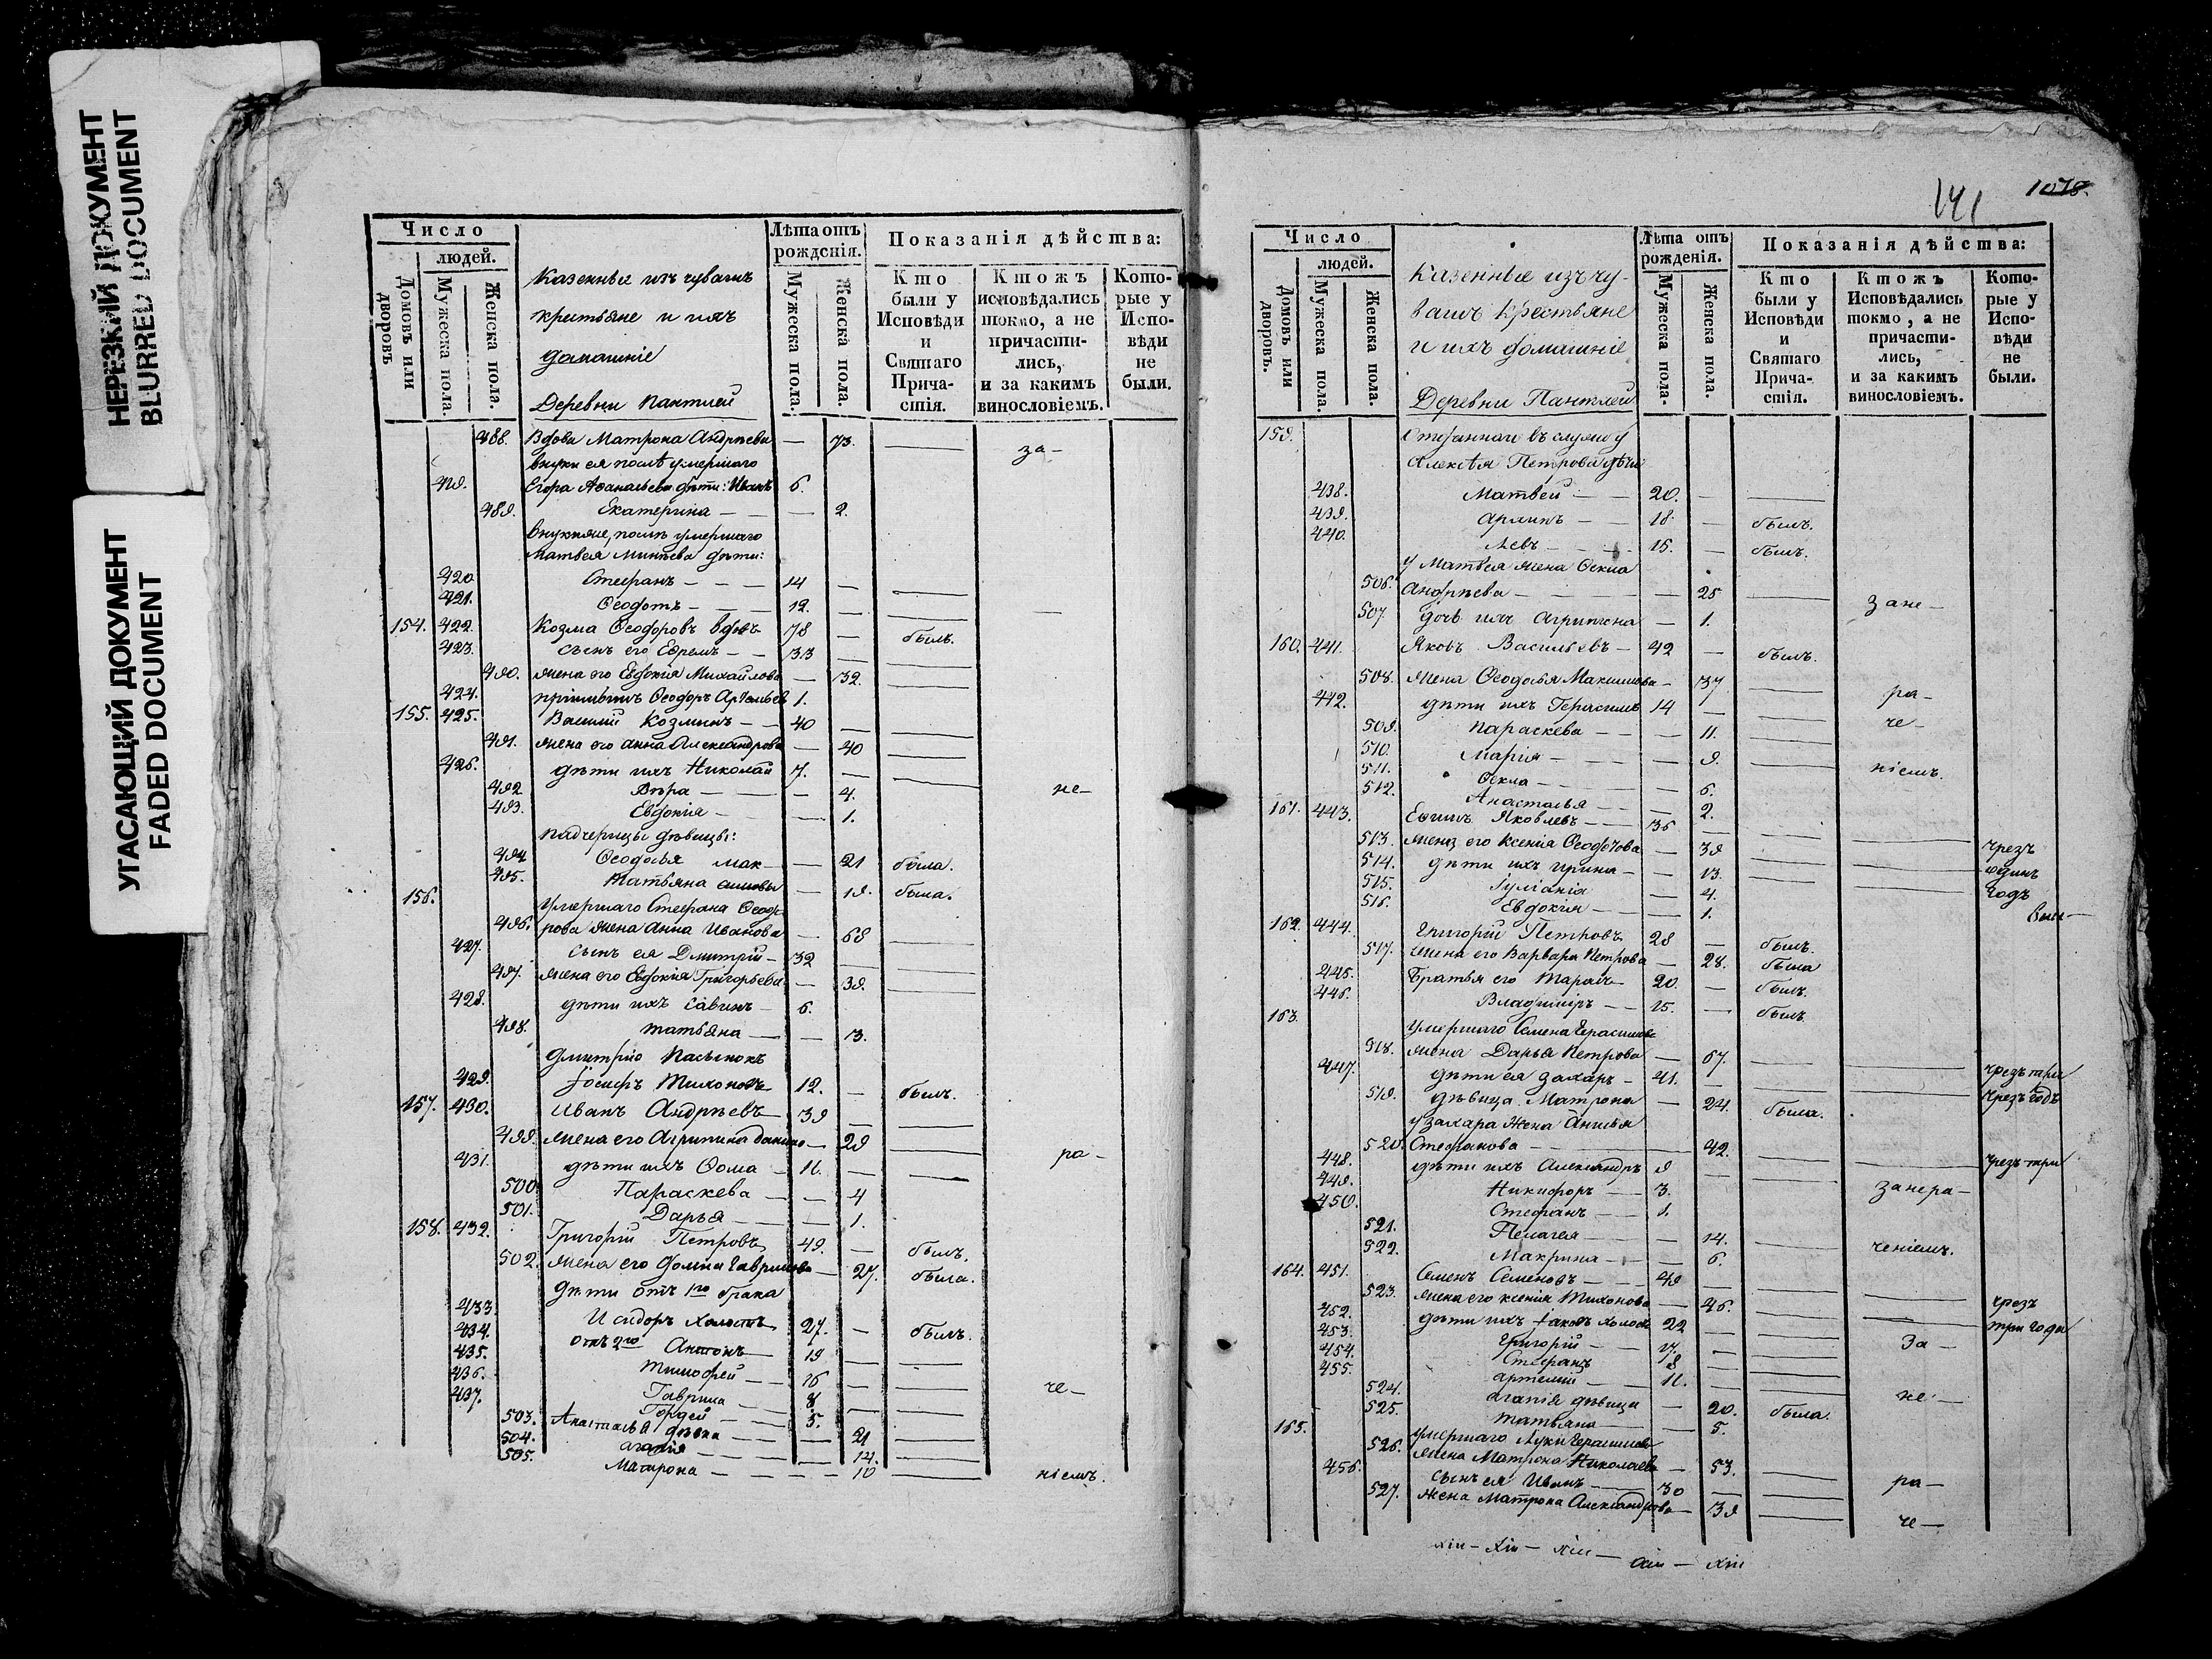 НЕРЕЗКИЙ ДОКУМЕНТ
BLURRED DOCUMENT
УГАСАЮЩИЙ ДОКУМЕНТ
FADED DOCUMENT
Число
людей.
Домовъ или дворовъ
Мужеска пола.
Женска пола.
Казенные изъ чувашъ
крестьяне и ихъ
домашніе
Деревни Пантлей
Лѣта отъ рожденія.
Мужеска пола.
Женска пола.
Показанія дѣйства:
Кто были у Исповѣди и Святаго Причастія.
Ктожъ исповѣдались токмо, а не причастились, и за какимъ винословіемъ.
Которые у Исповѣди не были.
488. Вдова Матрона Андрѣева — 73. — за-
внуки ея послѣ умершаго
419. Егора Афанасьева дѣти: Иванъ 6.
489. Екатерина — — 2.
внукиже, послѣ умершаго
Матвея Минѣева дѣти:
420. Стефанъ — — 14 —
421. Ѳеодотъ — — 12. —
154. 422. Козма Ѳеодоровъ вдовъ 78 — былъ.
423. сынъ его Ефремъ — 33 —
490. жена его Евдокія Михайлова — 32. —
424. Ѳеодоръ 1.
155. 425. Василій Козминъ — 40 —
491. жена его Анна Александрова — 40 —
426. дѣти ихъ Николай 7. —
492 Вѣра — — 4. не-
493. Евдокія — — 1.
падчерицы дѣвицы:
494 Ѳеодосья Мак — 21 была.
495. Татьяна симовы — 19. была.
156. умершаго Стефана Ѳеодо
496. рова жена Анна Иванова — 68 —
427. сынъ ея Дмитрій — 32 —
497. жена его Евдокія Григорьева — 39. —
428. дѣти ихъ Савинъ — 6.
498. Татьяна — — 3.
Дмитрію Пасынокъ
429. Іосифъ Тихоновъ 12. — былъ.
157. 430. Иванъ Андрѣевъ — 39 —
499. жена его Агрипина — 29 —
431. дѣти ихъ Ѳома — 11. — ра-
500. Параскева — — 4
501. Дарья — — 1.
158. 432. Григорій Петровъ 49. — былъ.
502. жена его Домна Гаврилова — 27. была.
Дѣти отъ 1го брака
433. Исидоръ холостъ 27. — былъ.
434. отъ 2го Антонъ — 19 —
435. Тимофей — 16 — че-
436. Гаврила — 8 —
437. Гордей — 5. —
503. Анастасья дѣвка — 21 —
504. Агапія — — 14. —
505. Матрона — — 10 — ніемъ.
141
1078.
Число
людей.
Домовъ или дворовъ.
Мужеска пола.
Женска пола.
Казенные изъ чу-
вашъ Крестьяне
и ихъ домашніе
Деревни Пантлей
Лѣта отъ рожденія.
Мужеска пола.
Женска пола.
Показанія дѣйства:
Кто были у Исповѣди и Святаго Причастія.
Ктожъ Исповѣдались токмо, а не причастились, и за какимъ винословіемъ.
Которые у Исповѣди не были.
159. Отданнаго въ службу
Алексѣя Петрова дѣти
438. Матвей — — 20. —
439. — 18. — былъ.
440. Левъ — — 15. — былъ.
у Матвея жена Ѳекла
506. Андрѣева — — 25 — зане-
507. дочь ихъ Агрипина — 1.
160. 441. Яковъ Васильевъ — 42 — былъ.
508. жена Ѳеодосья Максимова — 37 — ра-
442. дѣти ихъ Герасимъ 14 — че-
509. Параскева — — 11. —
510. Марія — — 9. — ніемъ.
511. Ѳекла — — 6.
512. Анастасья — — 2.
161. 443. Яковлевъ — 36 — чрезъ
513. жена его Ксенія Ѳеодотова — 39 — одинъ
514. дѣти ихъ Ирина — 13. — годъ
515. Іуліанія — 4.
516. Евдокія — — 1.
162. 444. Григорій Петровъ 28 — былъ.
517. жена его Варвара Петрова — 28. была
445. Братья его 20. — былъ.
446. Владиміръ — 15. — былъ.
163. умершаго Семена Герасимова
518. жена Дарья Петрова — 67. — чрезъ три
447. дѣти ея Захаръ — 41. — чрезъ годъ
519. дѣвица Матрона — 24. была.
у Захара жена Анисья
520. Стефанова — — 42. — чрезъ три
448. дѣти ихъ Александръ 9 —
449. Никифоръ — 3. занера-
450. Стефанъ — 1.
521. Пелагея — — 14. — ченіемъ.
522. Макрина — — 6.
164. 451. Семенъ Семеновъ — 49 — чрезъ
523. жена его Ксенія Тихонова — 46. — три года
452. дѣти ихъ Іаковъ холостъ 22 — За-
453. Григорій — 17. —
454. Стефанъ 8 —
455. Артемій — 11. — не-
524. Агапія дѣвица — 20. была.
525. Татьяна — — 5.
165. умершаго Луки Герасимова
526. жена Матрона Николаева — 53. — ра-
456. сынъ ея Иванъ — 30 —
527. жена Матрона Александрова — 39 — че-